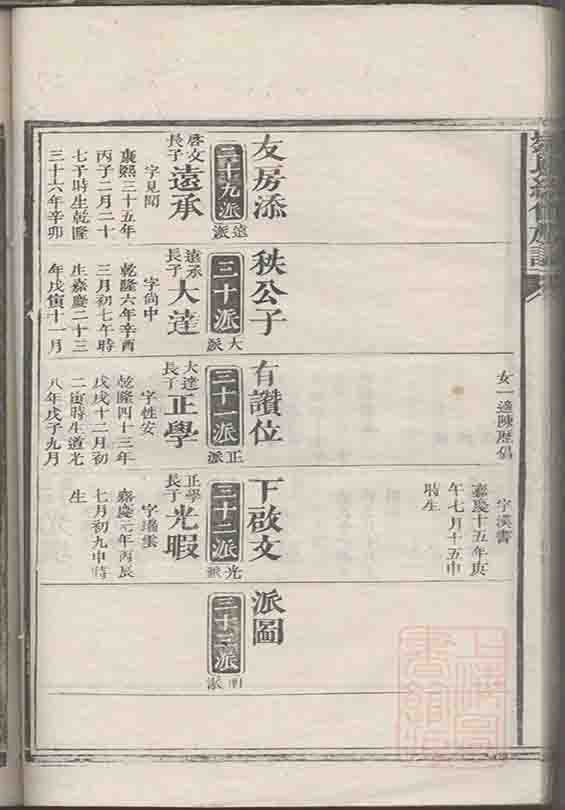 女一適陳歷倡
字漢書
嘉慶十五年庚
午七月十五申
時生
友房添秩公子有讚位下啟文派圖
二十九派
遠派
啓文
長子
遠承
字見聞
康熙三十五年
丙子二月二十
七子時生乾隆
三十六年辛卯
三十派
大派
遠承
長子
大達
字尚中
乾隆六年辛酉
三月初七午時
生嘉慶二十三
年戊寅十一月
三十一派
正派
大達
長子
正學
字性安
乾隆四十三年
戊戌十二月初
二寅時生道光
八年戊子九月
三十二派
光派
正學
長子
光暇
字瑤雲
嘉慶元年丙辰
七月初九申時
生
三十三派
明派